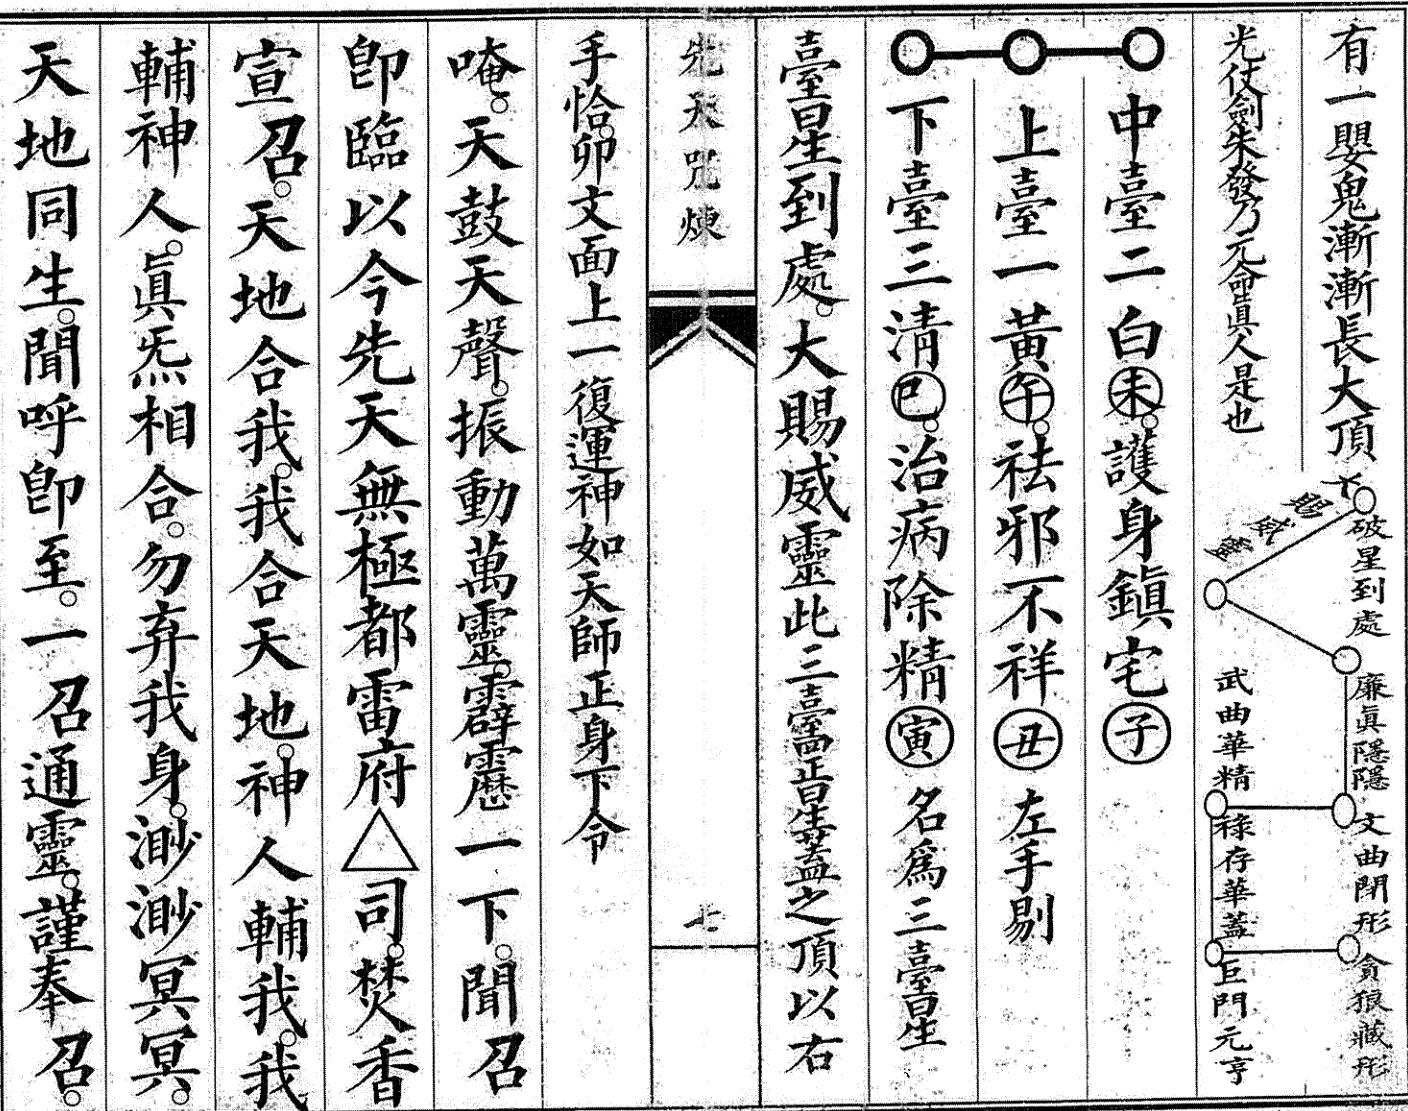 有一嬰鬼漸漸長大頂
光仗劍朱發乃元命眞人是也
破星到處
大賜威靈
廉眞隱隱
文曲閉形
貪狼藏形
武曲華精
祿存華蓋
巨門元亨
中臺二白未。護身鎮宅子
上臺一黃午。祛邪不祥丑 左手剔
下臺三清巳。治病除精寅 名爲三臺星
臺星到處。大賜威靈此三臺蓋之頂以右
先天咒煉
七
手恰卯文面上一復運神如天師正身下令
唵。天鼓天聲。振動萬靈。霹靂一下。聞召
卽臨以今先天無極都雷府△司。焚香
宣召。天地合我。我合天地。神人輔我。我
輔神人。眞炁相合。勿弃我身。渺渺冥冥。
天地同生。聞呼卽至。一召通靈。謹奉召。